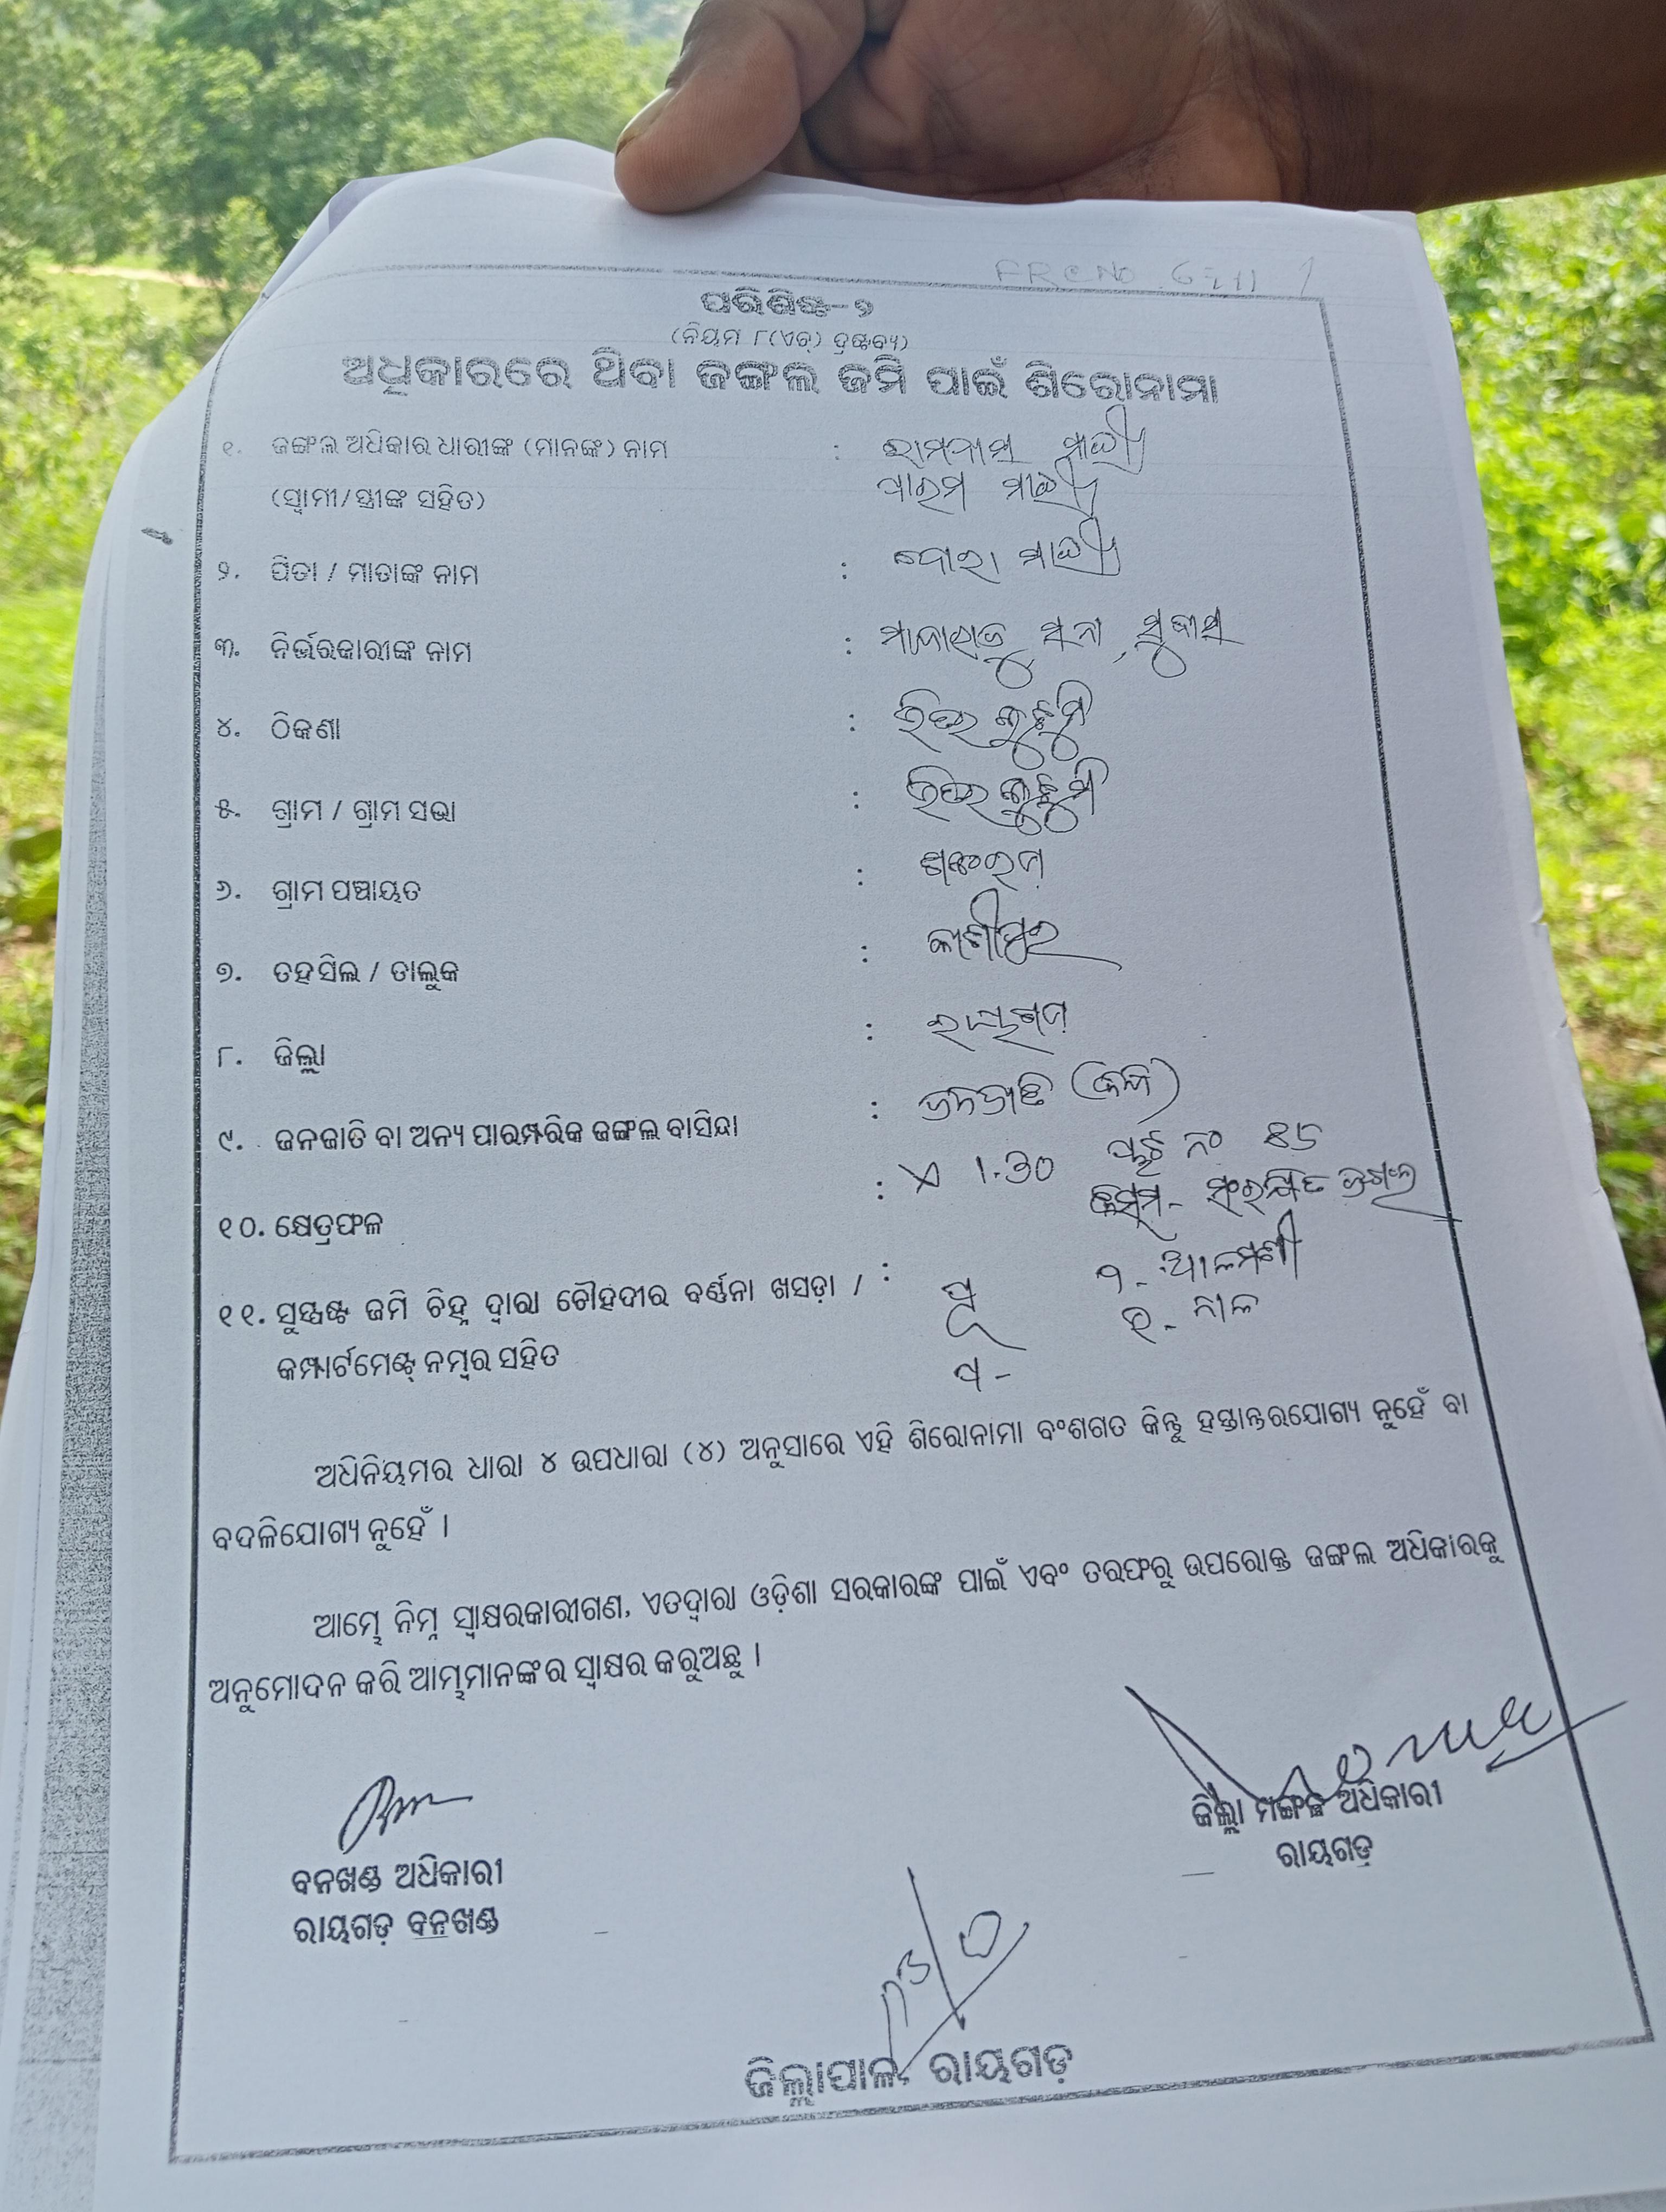 FRC No. 6-11 1
ପରିଶିଷ୍ଟ-୨
(ନିୟମ ୮(ଏଚ୍) ଦ୍ରଷ୍ଟବ୍ୟ)
ଅଧିକାରରେ ଥିବା ଜଙ୍ଗଲ ଜମି ପାଇଁ ଶିରୋନାମା
୧. ଜଙ୍ଗଲ ଅଧିକାର ଧାରୀଙ୍କ (ମାନଙ୍କ) ନାମ : ରାମଦାସ ମାଝୀ
(ସ୍ୱାମୀ/ସ୍ତ୍ରୀଙ୍କ ସହିତ) ମାଝୀ
୨. ପିତା / ମାତାଙ୍କ ନାମ : ମାଝୀ
୩. ନିର୍ଭରକାରୀଙ୍କ ନାମ :
୪. ଠିକଣା :
୫. ଗ୍ରାମ / ଗ୍ରାମ ସଭା :
୬. ଗ୍ରାମ ପଞ୍ଚାୟତ :
୭. ତହସିଲ / ତାଲୁକ : କାଶୀପୁର
୮. ଜିଲ୍ଲା : ରାୟଗଡ଼
୯. ଜନଜାତି ବା ଅନ୍ୟ ପାରମ୍ପରିକ ଜଙ୍ଗଲ ବାସିନ୍ଦା : ଜନଜାତି (କନ୍ଧ)
୧୦. କ୍ଷେତ୍ରଫଳ : 1.30 ପ୍ଲଟ ନଂ 85
କିସମ- ସଂରକ୍ଷିତ ଜଙ୍ଗଲ
୧୧. ସୁସ୍ପଷ୍ଟ ଜମି ଚିହ୍ନ ଦ୍ୱାରା ଚୌହଦୀର ବର୍ଣ୍ଣନା ଖସଡ଼ା / : ପୂ
କମ୍ପାର୍ଟମେଣ୍ଟ ନମ୍ବର ସହିତ ପ- ଉ- ନାଳ
ଅଧିନିୟମର ଧାରା ୪ ଉପଧାରା (୪) ଅନୁସାରେ ଏହି ଶିରୋନାମା ବଂଶଗତ କିନ୍ତୁ ହସ୍ତାନ୍ତରଯୋଗ୍ୟ ନୁହେଁ ବା
ବଦଳିଯୋଗ୍ୟ ନୁହେଁ ।
ଆମ୍ଭେ ନିମ୍ନ ସ୍ୱାକ୍ଷରକାରୀଗଣ, ଏତଦ୍ୱାରା ଓଡ଼ିଶା ସରକାରଙ୍କ ପାଇଁ ଏବଂ ତରଫରୁ ଉପରୋକ୍ତ ଜଙ୍ଗଲ ଅଧିକାରକୁ
ଅନୁମୋଦନ କରି ଆମ୍ଭମାନଙ୍କର ସ୍ୱାକ୍ଷର କରୁଅଛୁ ।
ଜିଲ୍ଲା ମଙ୍ଗଳ ଅଧିକାରୀ
ରାୟଗଡ଼
ବନଖଣ୍ଡ ଅଧିକାରୀ
ରାୟଗଡ଼ ବନଖଣ୍ଡ
ଜିଲ୍ଲାପାଳ, ରାୟଗଡ଼